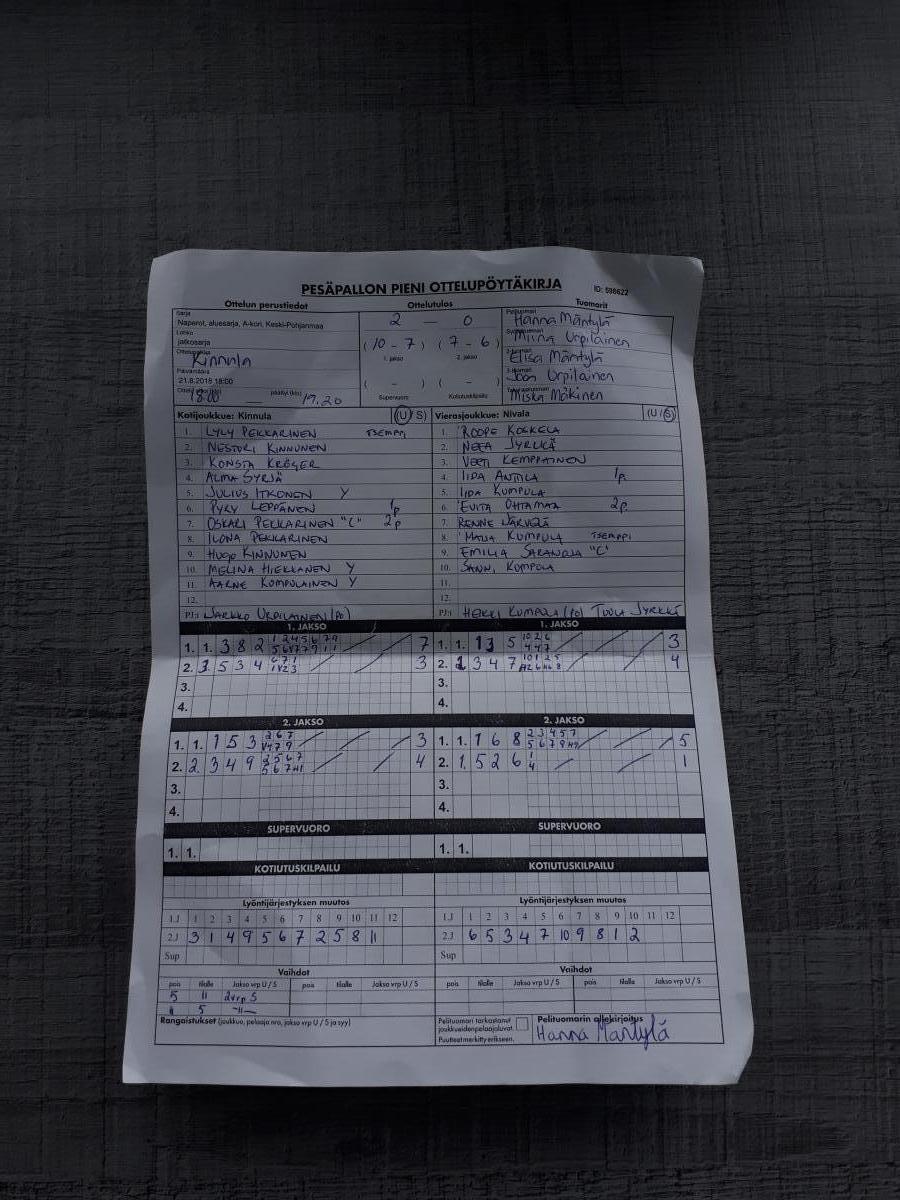 PESÄPALLON PIENI OTTELUPÖYTÄKIRJA
ID: 598622
Ottelun perustiedot Ottelutulos Tuomarit
Sarja
Naperot, aluesarja, A-kori, Keski-Pohjanmaa
Lohko
jatkosarja
Kinnula
Päivämäärä
21.8.2018 18:00
18:00 — päättyi (klo) 19.20
2 — 0
( 10 - 7 ) ( 7 - 6 )
1. jakso 2. jakso
( - ) ( - )
Supervuoro Kotiutuskilpailu
Pelituomari
Hanna Mäntylä
Miina Urpilainen
Elisa Mäntylä
Joon Urpilainen
Miska Mäkinen
Kotijoukkue: Kinnula (U / S)
1. LYLY PEKKARINEN TSEMPPI
2. NESTORI KINNUNEN
3. KONSTA KRÖGER
4. ALMA SYRJÄ
5. JULIUS ITKONEN Y
6. PYRY LEPPÄNEN 1p
7. OSKARI PEKKARINEN "C" 2p
8. ILONA PEKKARINEN
9. HUGO KINNUNEN
10. MELINA HIEKKANEN Y
11. AARNE KUMPULAINEN Y
12.
PJ:1 JARKKO URPILAINEN (PO)
Vierasjoukkue: Nivala (U / S)
1. ROOPE KOSKELA
2. NEEA JYRKKÄ
3. VEETI KEMPPAINEN
4. IIDA ANTTILA 1p.
5. IIDA KUMPULA
6. EVITA OHTAMAA 2p.
7. RENNE JÄRVELÄ
8. MAIJA KUMPULA TSEMPPI
9. EMILIA SARANOJA "C"
10. SANNI KUMPULA
11.
12.
PJ:1 HEIKKI KUMPULA (PO) TUULA JYRKKÄ
1. JAKSO 1. JAKSO
1. 1. 3 8 2 7
2. 3 5 3 4 3
3.
4.
1. 1. 13 5 3
2. 2 3 4 7 4
3.
4.
2. JAKSO 2. JAKSO
1. 1. 1 5 3 3
2. 2. 3 4 9 4
3.
4.
1. 1. 1 6 8 5
2. 1. 5 2 6 1
3.
4.
SUPERVUORO SUPERVUORO
1. 1. 1. 1.
KOTIUTUSKILPAILU KOTIUTUSKILPAILU
Lyöntijärjestyksen muutos
1.J 1 2 3 4 5 6 7 8 9 10 11 12
2.J 3 1 4 9 5 6 7 2 5 8 11
Sup
Lyöntijärjestyksen muutos
1.J 1 2 3 4 5 6 7 8 9 10 11 12
2.J 6 5 3 4 7 10 9 8 1 2
Sup
Vaihdot Vaihdot
pois tilalle Jakso vrp U / S pois tilalle Jakso vrp U / S
5 11 2vrp S
11 5 —11—
pois tilalle Jakso vrp U / S pois tilalle Jakso vrp U / S
Rangaistukset (joukkue, pelaaja nro, jakso vrp U / S ja syy)
Pelituomari tarkastanut
joukkueiden pelaajaluvat.
Puutteet merkitty erikseen.
Pelituomarin allekirjoitus
Hanna Mäntylä